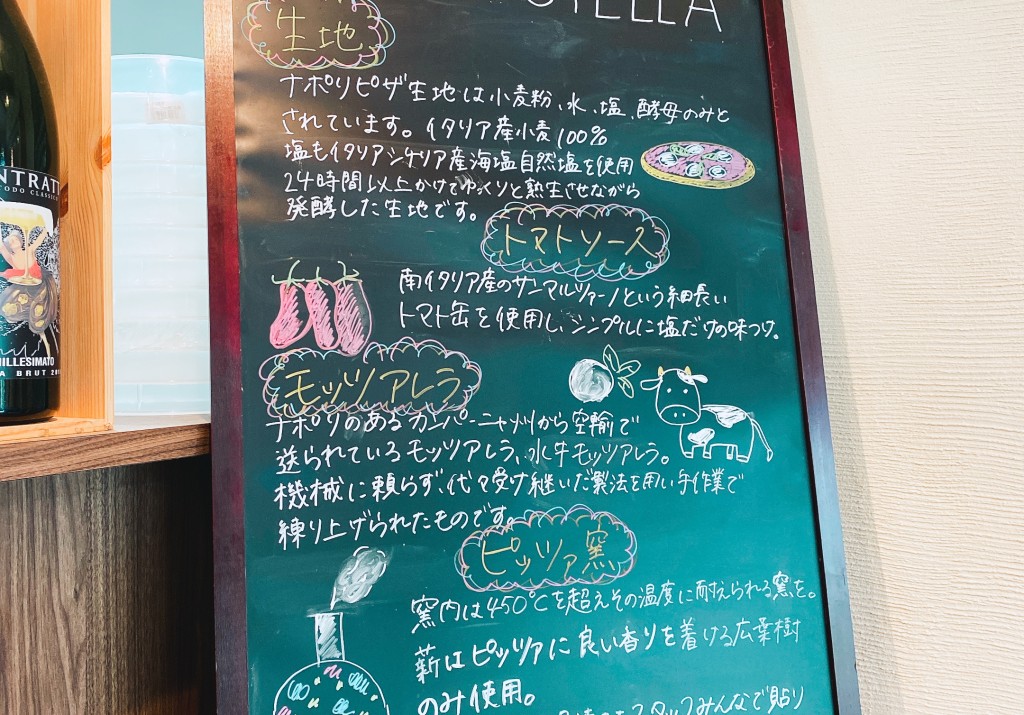 STELLA
生地
ナポリピザ生地は小麦粉、水、塩、酵母のみと
されています。イタリア産小麦100%
塩もイタリアシチリア産海塩自然塩を使用
24時間以上かけてゆっくりと熟生させながら
発酵した生地です。
トマトソース
南イタリア産のサンマルツァーノという細長い
トマト缶を使用し、シンプルに塩だけの味つけ。
モッツアレラ
ナポリのあるカンパーニャ州から空輸で
送られているモッツアレラ、水牛モッツアレラ。
機械に頼らず、代々受け継いだ製法を用い手作業で
練り上げられたものです。
ピッツァ窯
窯内は450℃を超えその温度に耐えられる窯を。
薪はピッツァに良い香りを着ける広葉樹
のみ使用。
スタッフみんなで貼り
NTRATT
TODO CLASSICO
MILLESIMATO
BRUT